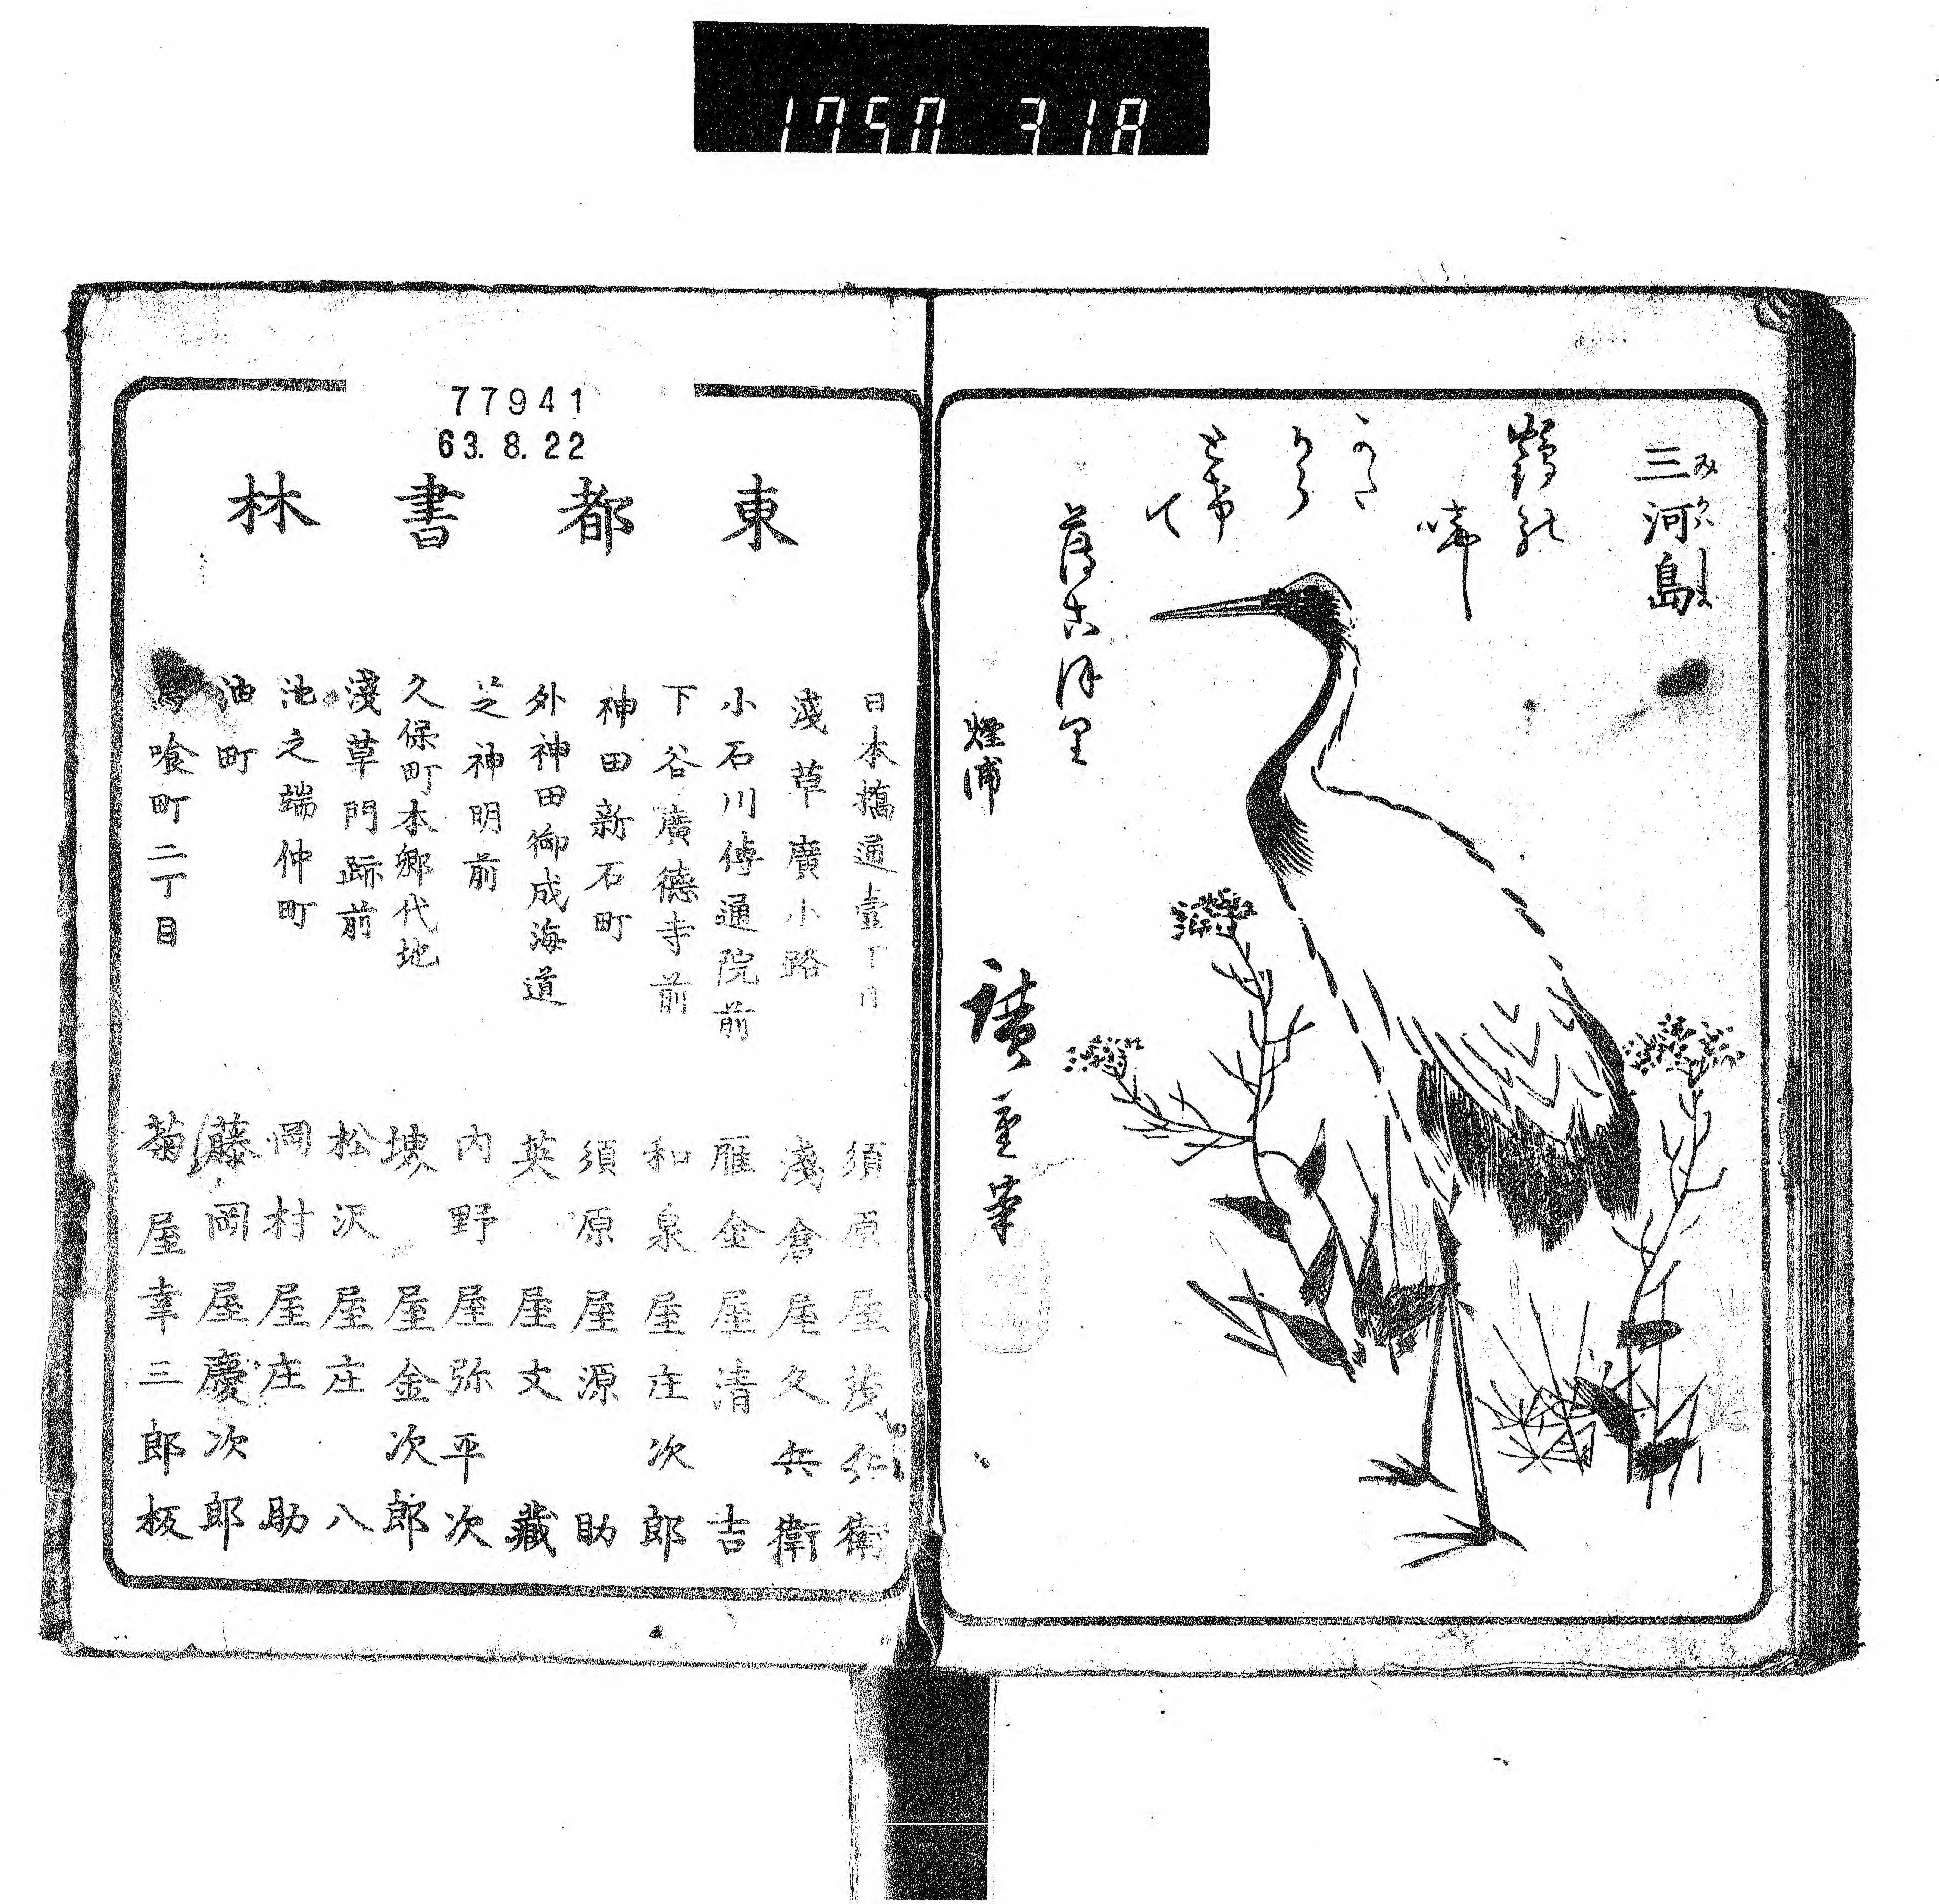 1750 318
三河島
みかハしま
鶴の
啼
かた
から
て
煙浦
廣重筆
77941
63.8.22
東都書林
日本橋通壹丁目 須原屋茂兵衛
淺草廣小路 淺倉屋久兵衛
小石川傳通院前 雁金屋清吉
下谷廣德寺前 和泉屋庄次郎
神田新石町 須原屋源助
外神田御成海道 英屋文藏
芝神明前 内野屋弥平次
久保町本郷代地 堺屋金次郎
淺草門跡前 松沢屋庄八
池之端仲町 岡村屋庄助
油町 藤岡屋慶次郎
馬喰町二丁目 菊屋幸三郎板